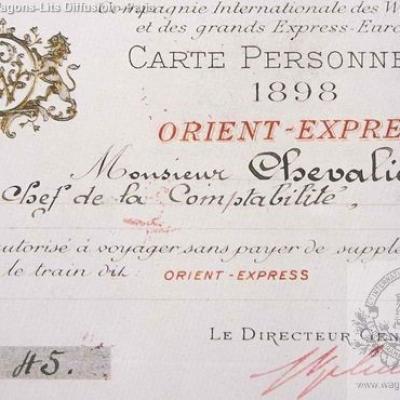 Wagons-Lits Diffusion Paris
Compagnie Internationale des W
et des grands Express-Euro
CARTE PERSONNE
1898
ORIENT-EXPRE
Monsieur Chevalie
Chef de la Comptabilité,
autorisé à voyager sans payer de supplé
le train dit: ORIENT-EXPRESS
LE DIRECTEUR GEN
45.
www.wago